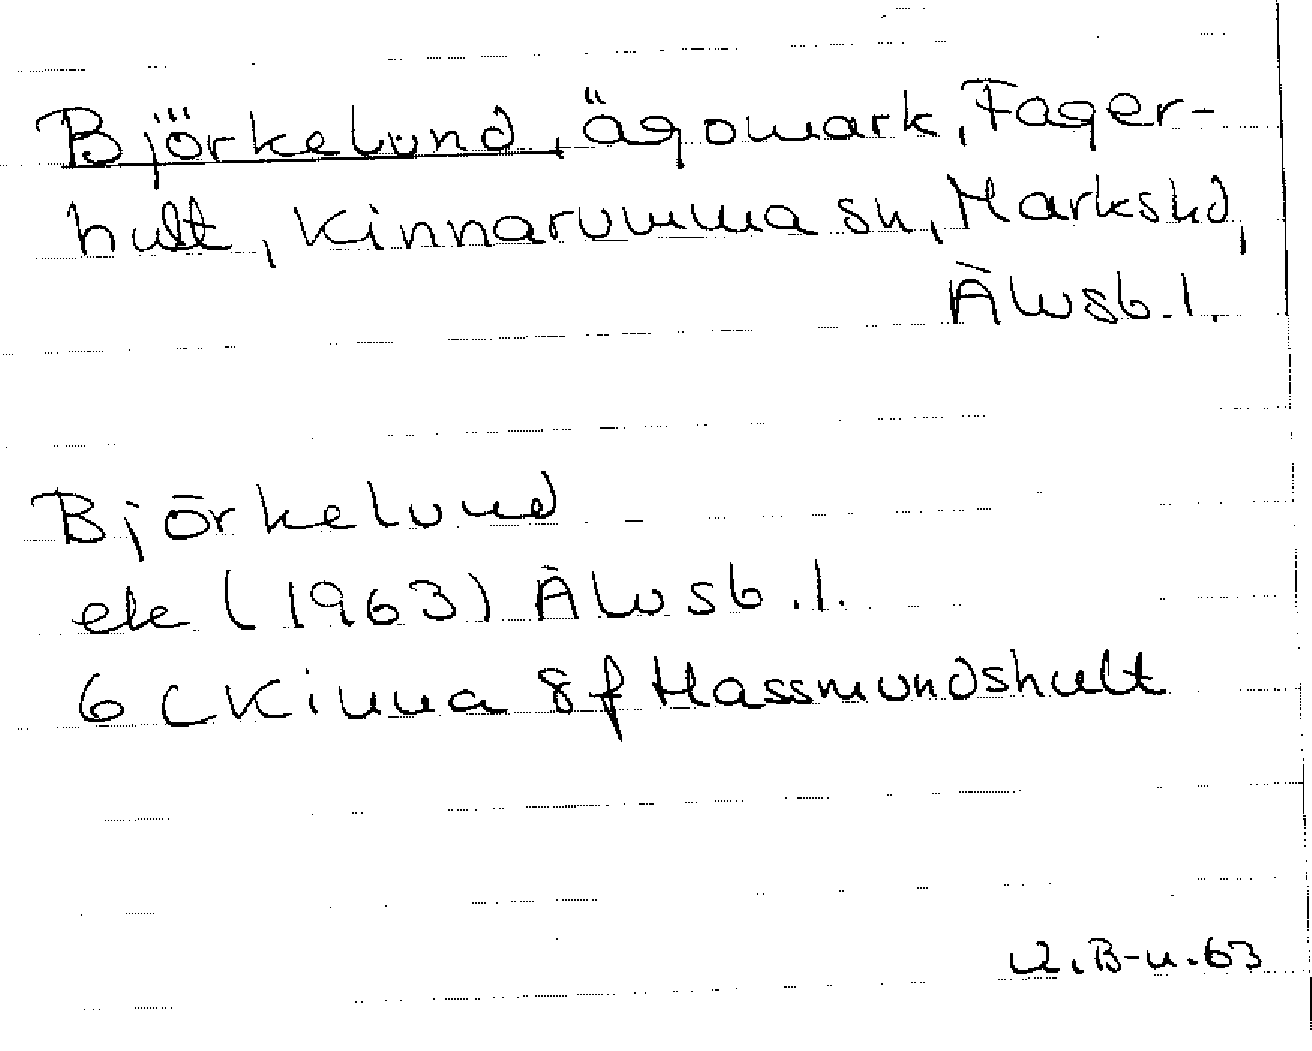 Björkelund, ägomark, Fager-
hult, Kinnarumma sn, Marks hd,
Älvsb. l.
Björkelund
ek (1963) Älvsb. l.
6 C Kinna 8 f Hassmundshult
B-n. 63